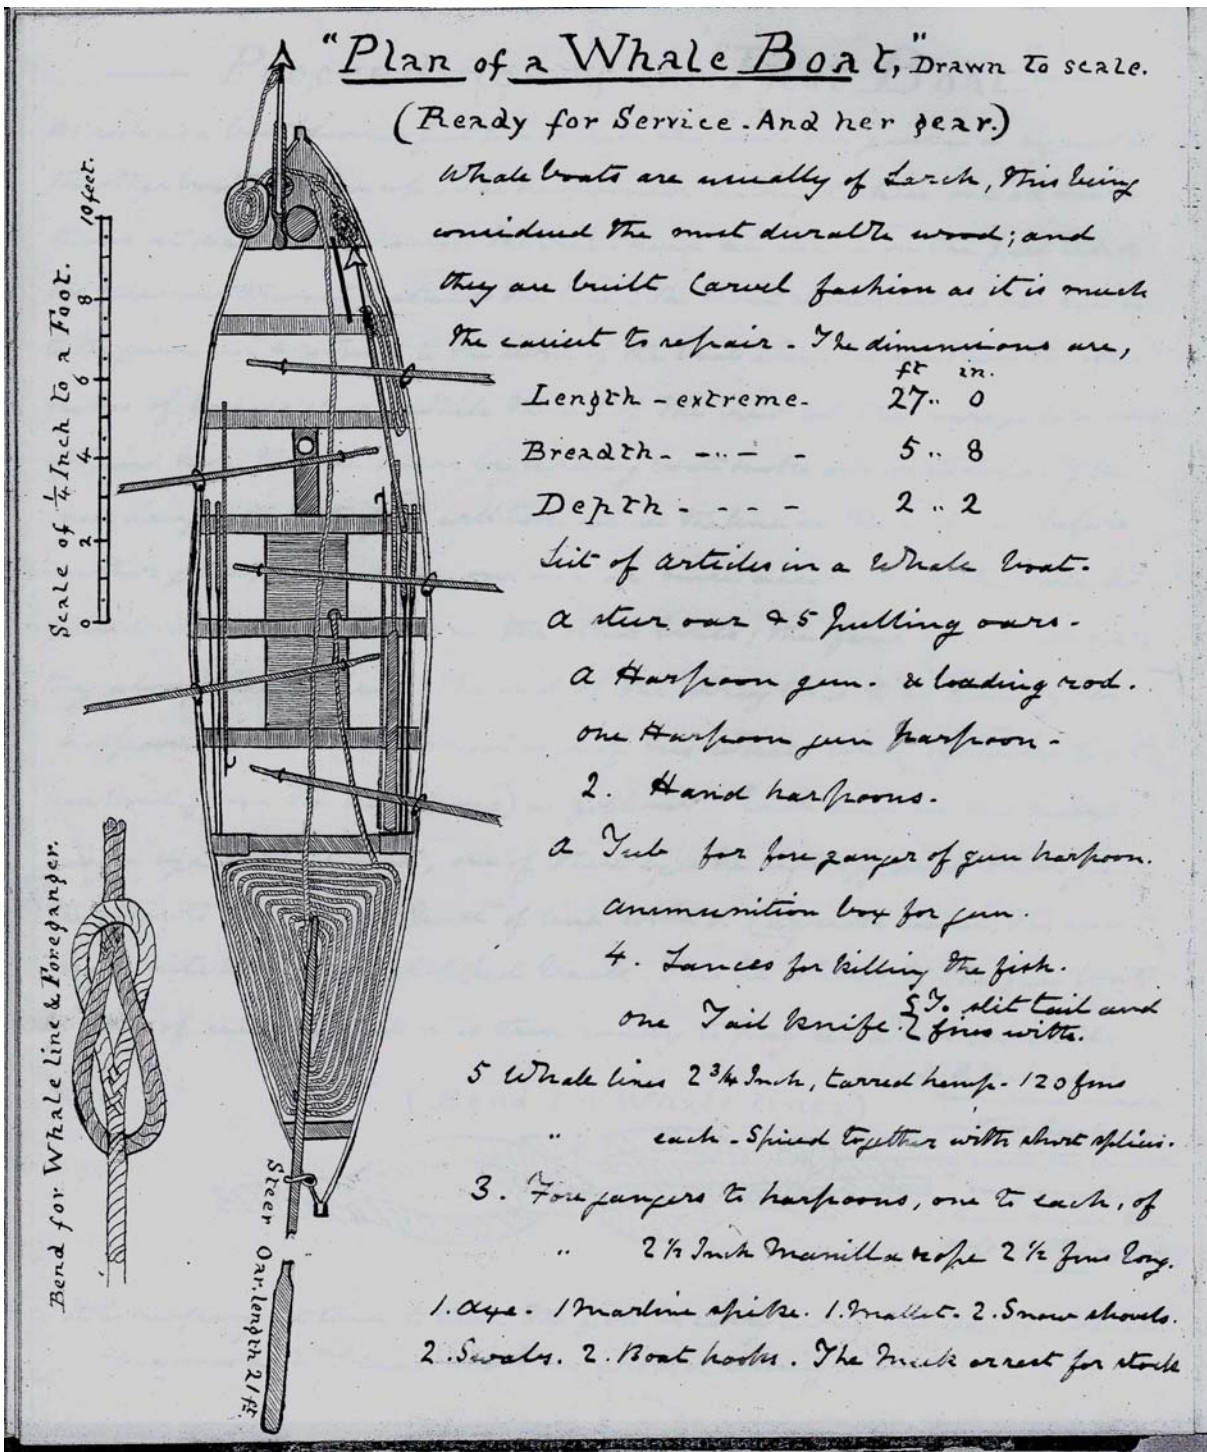 "Plan of a Whale Boat," Drawn to scale.
(Ready for Service. And her gear.)
Whale boats are usually of Larch, this being
considered the most durable wood; and
they are built Carvel fashion as it is much
the easiest to repair - The dimensions are,
ft in.
Length - extreme - 27 .. 0
Breadth - - .. - - 5 .. 8
Depth - - - - 2 .. 2
List of articles in a Whale boat.
A steer oar & 5 pulling oars -
A Harpoon gun. & loading rod.
one Harpoon gun harpoon -
2. Hand harpoons.
A Tub for fore ganger of gun harpoon.
ammunition box for gun.
4. Lances for killing the fish.
one Tail knife. { To slit tail and
fins with.
5 Whale lines 2 3/4 Inch, tarred hemp - 120 fms
" each - Spliced together with short splices.
3. Fore gangers to harpoons, one to each, of
" 2 1/2 Inch Manilla rope 2 1/2 fms long.
1. Axe. 1 Marline spike. 1. Mallet. 2. Snow shovels.
2. Swabs. 2. Boat hooks. The rest for stock
Scale of 1/4 Inch to a Foot.
0 2 4 6 8 10 feet.
Bend for Whale line & Foreganger.
Steer Oar. length 21 ft.